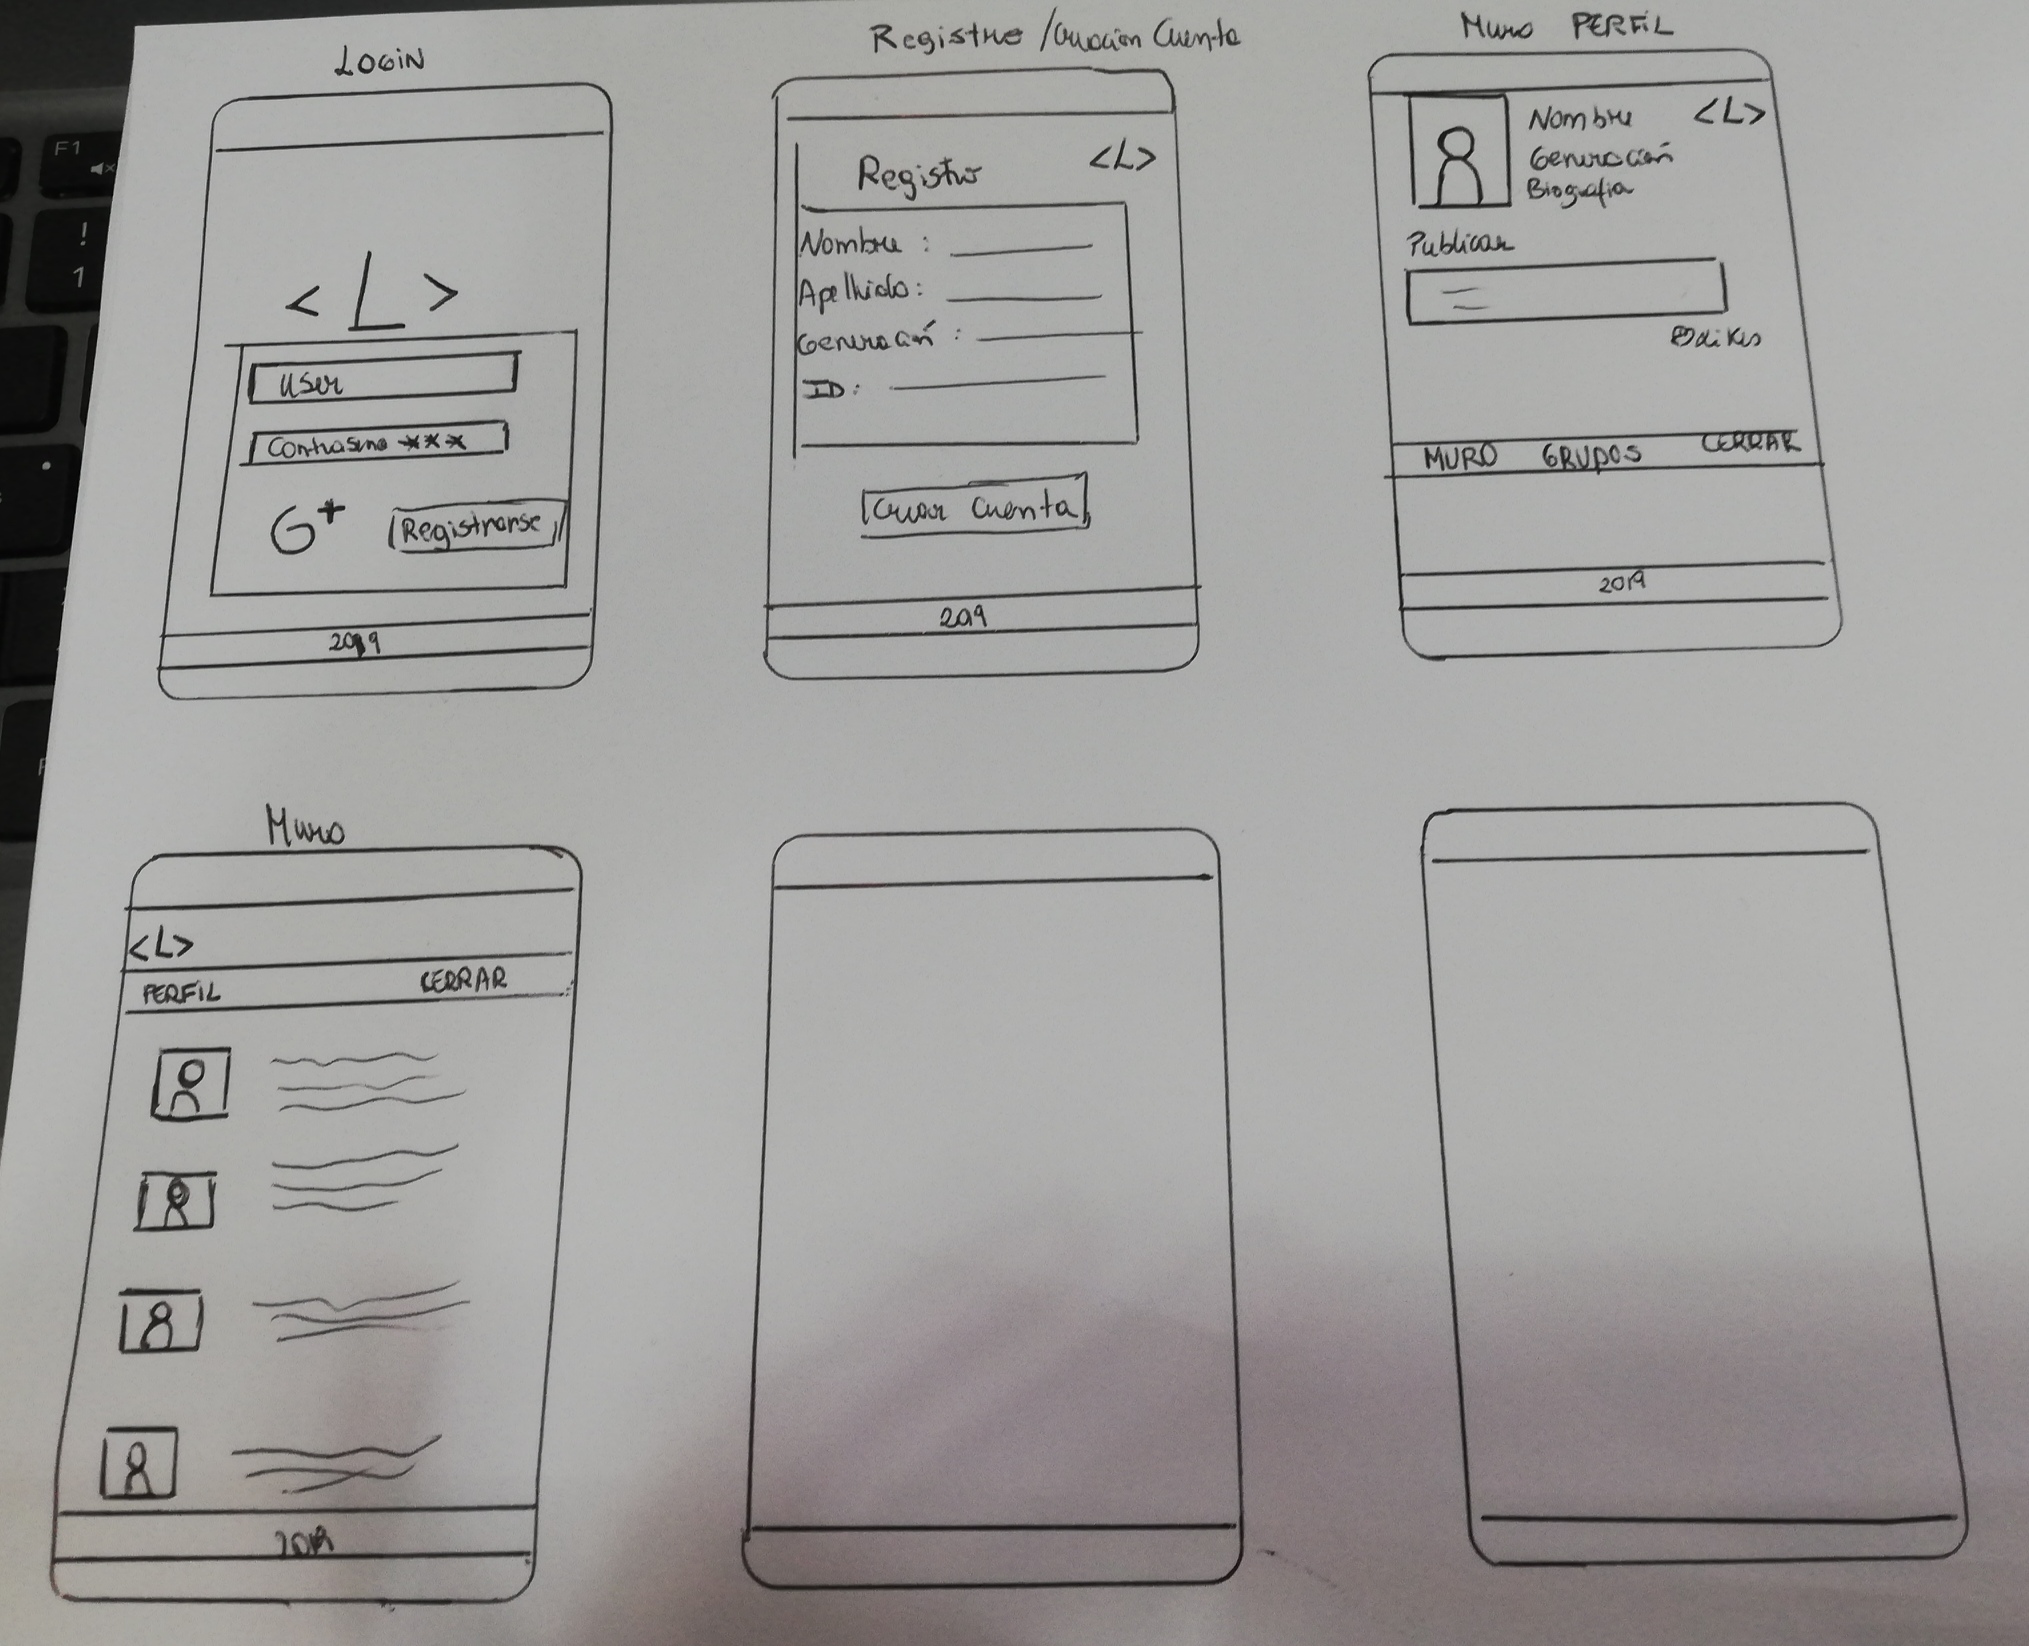 LOGIN
<L>
User
Contraseña ***
G+ Registrarse
2019
Registro / Creación Cuenta
Registro <L>
Nombre :
Apellido :
Generación :
ID :
Crear Cuenta
2019
Muro PERFIL
Nombre <L>
Generación
Biografia
Publicar
Likes
MURO GRUPOS CERRAR
2019
Muro
<L>
PERFIL CERRAR
2019
F1
!
1